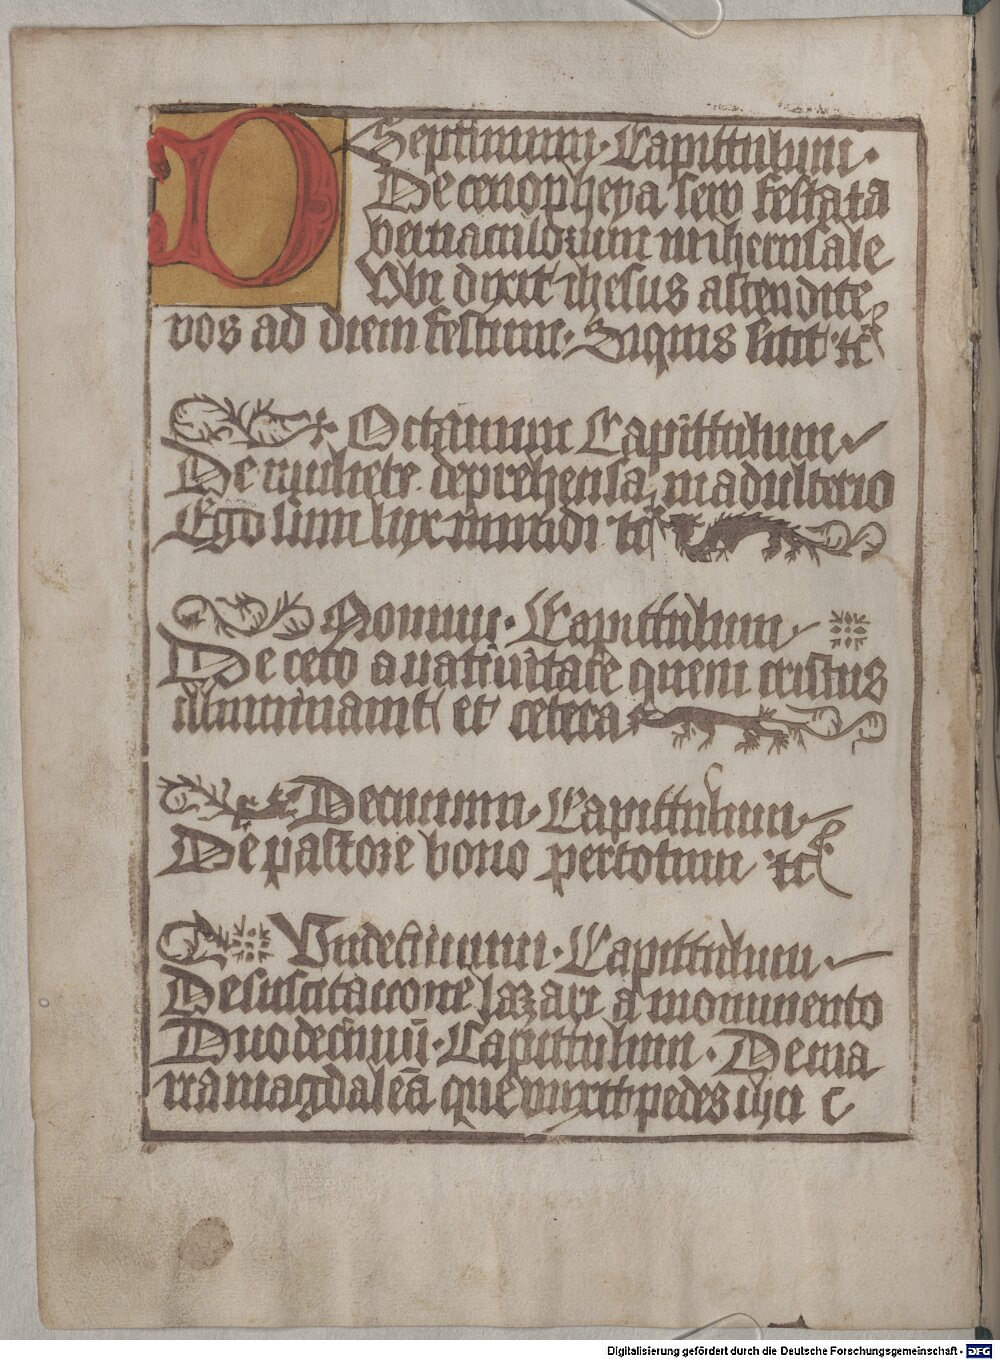 D
Septimum · Capittulum ·
De cenopheya sew festa ta
bernaculorum in iherusale
Vbi dixit ihesus ascendite
vos ad diem festum · Siquis sitit · tc
Octauum Capittulum
De muliere deprehensa in adulterio
Ego sum lux mundi tc
Nonum · Capittulum
De ceco a natiuitate quem cristus
illuminauit et cetera
Decimum · Capittulum
De pastore bono per totum · tc
Vndecimum · Capittulum ·
De suscitacione lazari a monumento
Duodecimū · Capittulum · De ma
ria magdaleā que vnxit pedes ihū c
Digitalisierung gefördert durch die Deutsche Forschungsgemeinschaft - DFG